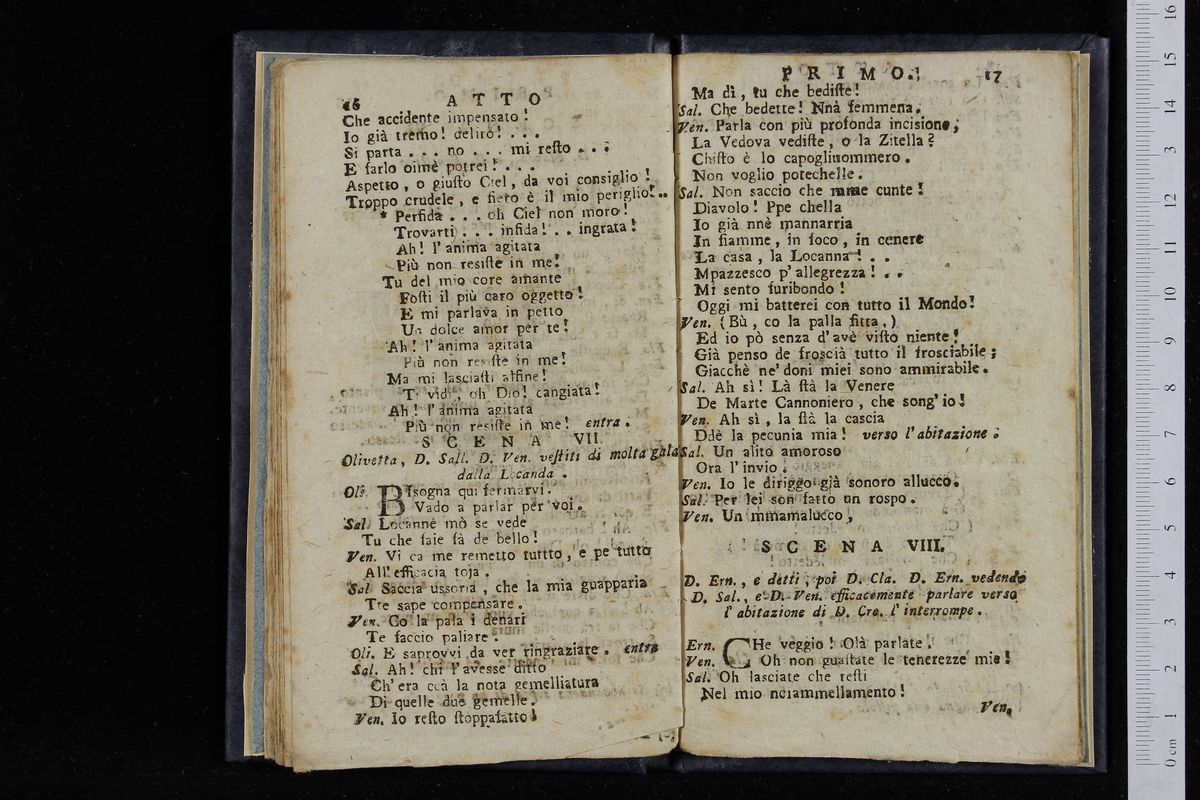 16 ATTO
Che accidente impensato!
Io già tremo! deliro! . . .
Si parta . . . no . . . mi resto . . .
E farlo oimè potrei! . . .
Aspetto, o giusto Ciel, da voi consiglio!
Troppo crudele, e fiero è il mio periglio! . .
* Perfida . . . oh Ciel non moro!
Trovarti . . . infida! . . ingrata!
Ah! l'anima agitata
Più non resiste in me!
Tu del mio core amante
Fosti il più caro oggetto!
E mi parlava in petto
Un dolce amor per te!
Ah! l'anima agitata
Più non resiste in me!
Ma mi lasciasti alfine!
Ti vidi, oh Dio! cangiata!
Ah! l'anima agitata
Più non resiste in me! entra.
SCENA VII.
Olivetta, D. Sall. D. Ven. vestiti di molta gala
dalla Locanda.
Oli. BIsogna qui fermarvi.
Vado a parlar per voi.
Sal. Locannè mò se vede
Tu che saie fà de bello!
Ven. Vi ca me remetto tuttto, e pe tutto
All'efficacia toja.
Sal. Saccia ussoria, che la mia guapparia
Tre sape compensare.
Ven. Co la pala i denari
Te faccio paliare.
Oli. E saprovvi da ver ringraziare. entra
Sal. Ah! chi l'avesse ditto
Ch'era ccà la nota gemelliatura
Di quelle due gemelle.
Ven. Io resto stoppafatto!
PRIMO. 17
Ma dì, tu che bediste!
Sal. Che bedette! Nnà femmena.
Ven. Parla con più profonda incisione;
La Vedova vediste, o la Zitella?
Chisto è lo capogliuommero.
Non voglio potechelle.
Sal. Non saccio che mme cunte!
Diavolo! Ppe chella
Io già nnè mannarria
In fiamme, in foco, in cenere
La casa, la Locanna! . .
Mpazzesco p'allegrezza! . .
Mi sento furibondo!
Oggi mi batterei con tutto il Mondo!
Ven. (Bù, co la palla fitta,)
Ed io pò senza d'avè visto niente!
Già penso de froscià tutto il frosciabile;
Giacchè ne'doni miei sono ammirabile.
Sal. Ah sì! Là stà la Venere
De Marte Cannoniero, che song'io!
Ven. Ah sì, la stà la cascia
Ddè la pecunia mia! verso l'abitazione.
Sal. Un alito amoroso
Ora l'invio.
Ven. Io le diriggo già sonoro allucco.
Sal. Per lei son fatto un rospo.
Ven. Un mmamalucco,
SCENA VIII.
D. Ern., e detti, poi D. Cla. D. Ern. vedendo
D. Sal., e D. Ven. efficacemente parlare verso
l'abitazione di D. Cre. l'interrompe.
Ern. CHe veggio! Olà parlate!
Ven. Oh non guastate le tenerezze mie!
Sal. Oh lasciate che resti
Nel mio nciammellamento!
Ven.